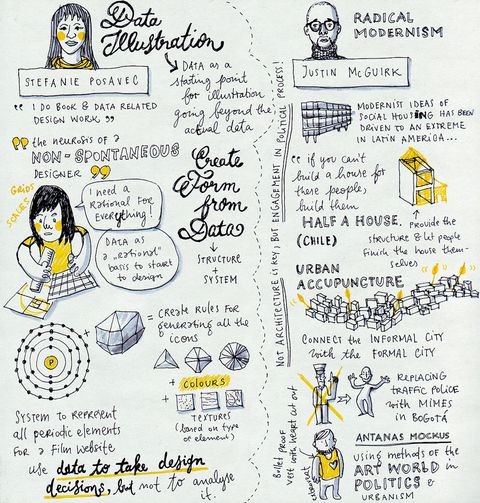 Data
Illustration
DATA as a
starting point
for illustration
going beyond the
actual data
STEFANIE POSAVEC
“ I DO BOOK & DATA RELATED
DESIGN WORK ”
“ the neurosis of a
NON-SPONTANEOUS
DESIGNER ”
GRIDS
SCALES
I need a
Rational For
Everything!
DATA as
a "rational"
basis to start
to design
Create
Form
from
Data
STRUCTURE
+
SYSTEM
P
+
= CREATE RULES FOR
generating all the
icons
+ COLOURS
+
TEXTURES
(based on type
of element)
SYSTEM to REPRESENT
all periodic elements
FOR a Film WEBSITE
use data to take design
decisions, but not to analyse
it.
NOT ARCHITECTURE is KEY, BUT ENGAGEMENT IN POLITICAL PROCESS!
RADICAL
MODERNISM
JUSTIN McGUIRK
MODERNIST IDEAS OF
SOCIAL HOUSING HAS BEEN
DRIVEN TO AN EXTREME
IN LATIN AMERICA...
“ if you can't
build a house for
these people,
build them
HALF A HOUSE.
(CHILE)
Provide the
STRUCTURE & let people
finish the house them-
selves ”
URBAN
ACCUPUNCTURE
CONNECT the INFORMAL CITY
with the FORMAL CITY
REPLACING
TRAFFIC POLICE
with MIMES
in BOGOTÁ
Bullet PROOF
vest with heart cut out
ANTANAS MOCKUS
using methods of the
ART WORLD in
POLITICS &
URBANISM